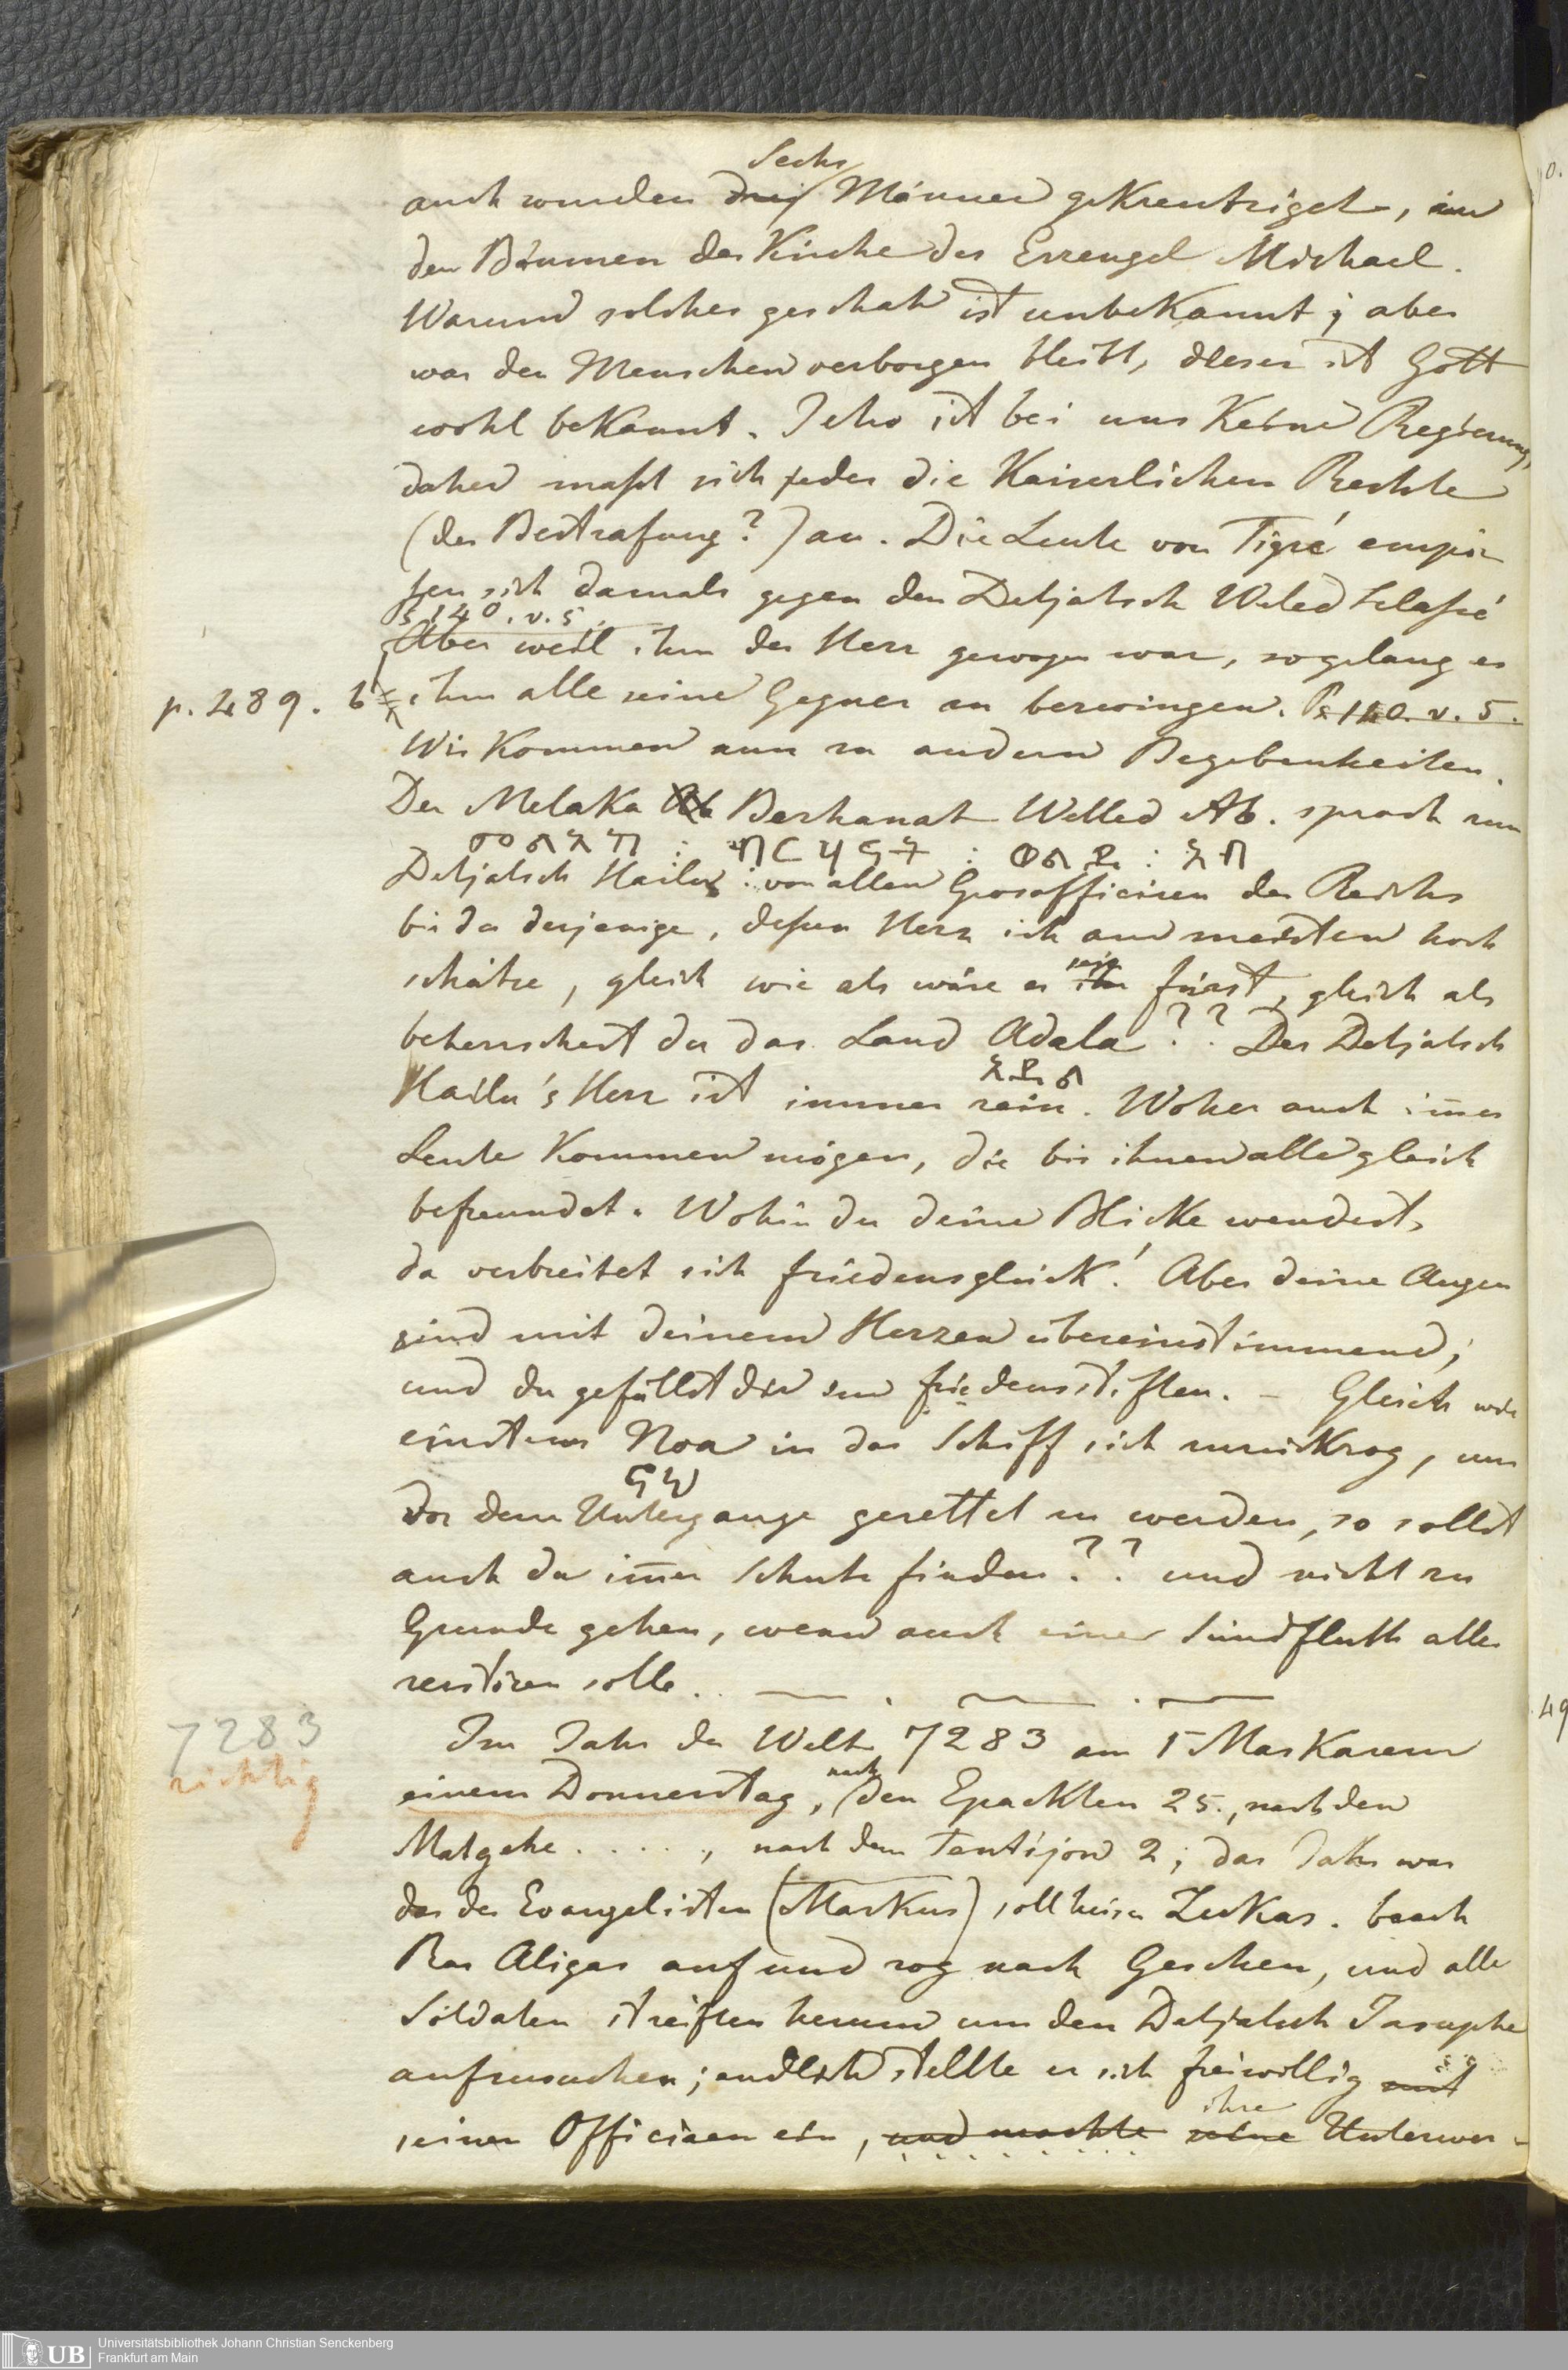 Sechs
auch wurden drei Männer gekreutziget, an
den Bäumen der Kirche des Erzengel Michael.
Warum solches geschah ist unbekannt; aber
was den Menschen verborgen bleibt, dieses ist Gott
wohl bekannt. Jetzo ist bei uns Keine Regierung,
daher maßt sich jeder die Kaiserlichen Rechte
(der Bestrafung?) an. Die Leute von Tigré empör
ten sich damals gegen den Detjatsch Weled Selassé
Ps 140. v. 5.
Aber weil ihm der Herr gewogen war, so gelang es
p. 289. b ihm alle seine Gegner zu bezwingen. Ps 140. v. 5.
Wir Kommen nun zu andern Begebenheiten.
Der Melaka Ab Berhanat Welled Ab. sprach zum
መልአከ : ብርሃናት : ወልደ : አብ
Detjatsch Hailu : von allen Grosofficiren des Reichs
bis du derjenige, dessen Herz ich am meisten hoch
schätze, gleich wie als wäre es sein ihr fürst, gleich als
beherrschest du das Land Adala ?? Des Detjatsch
አደል
Hailu's Herz ist immer rein. Woher auch imer
Leute Kommen mögen, die bis ihnen alle gleich
befreundet. Wohin du deine Blicke wendest,
da verbreitet sich friedensglück! Aber deine Augen
sind mit deinem Herzen übereinstimmend;
und du gefällst dir im friedensstiften. – Gleich wie
einstens Noa in das Schiff sich zurückzog, um
ኖኅ
vor dem Untergange gerettet zu werden, so sollst
auch du imer Schutz finden ?? und nicht zu
Grunde gehen, wenn auch eine Sündfluth alles
zerstören solle.
7283
richtig
Im Jahr der Welt 7283 am 1 MasKarem
einem Donnerstag, nach den Epackten 25., nach den
Matgehe . . . . , nach dem Tentijon 2; das Jahr war
das des Evangelisten (Markus) soll heisen Lukas. brach
Ras Aligas auf und zog nach Geschen, und alle
Soldaten streiften herum um den Detjatsch Jasuphe
aufzusuchen; endlich stellte er sich freiwillig mit
ihre
seinen Officiren ein, und machte seine Unterwer-
Universitätsbibliothek Johann Christian Senckenberg
Frankfurt am Main
UB